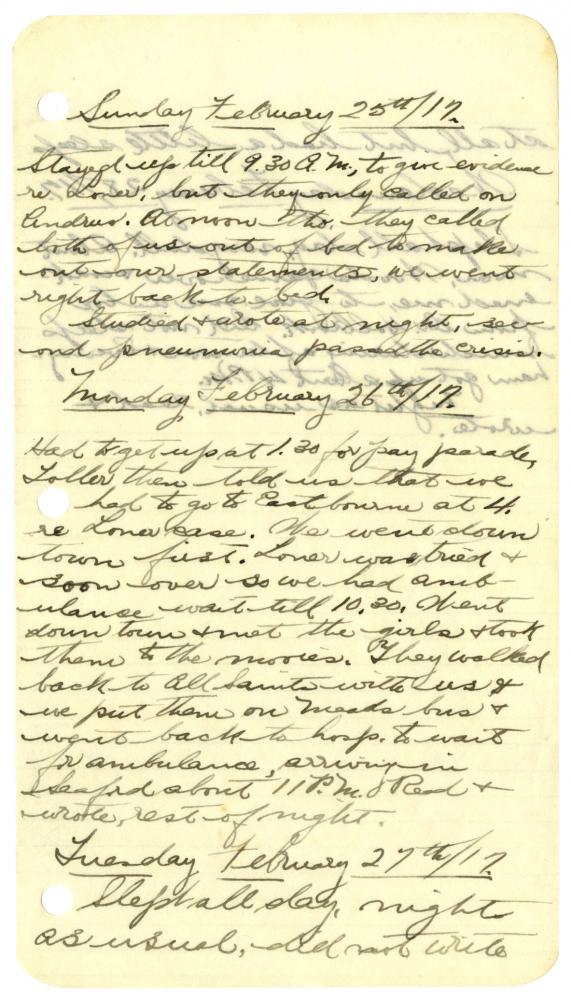 Sunday February 25th/17.
Stayed up till 9.30 A.M., to give evidence
re Loner, but they only called on
Andrus. At noon tho, they called
both of us out of bed to make
out our statements, we went
right back to bed.
Studied & wrote at night, sec-
ond pneumonia passed the crisis.
Monday, February 26th/17.
Had to get up at 1.30 for pay parade,
Toller then told us that we
had to go to Eastbourne at 4.
re Loner case. We went down
town first. Loner was tried &
soon over so we had amb-
ulance wait till 10.30. Went
down town & met the girls & took
them to the movies. They walked
back to All Saints with us &
we put them on Meads bus &
went back to hosp. to wait
for ambulance, arriving in
Seaford about 11 P.M. Read &
wrote, rest of night.
Tuesday February 27th/17.
Slept all day, night
as usual, did not write